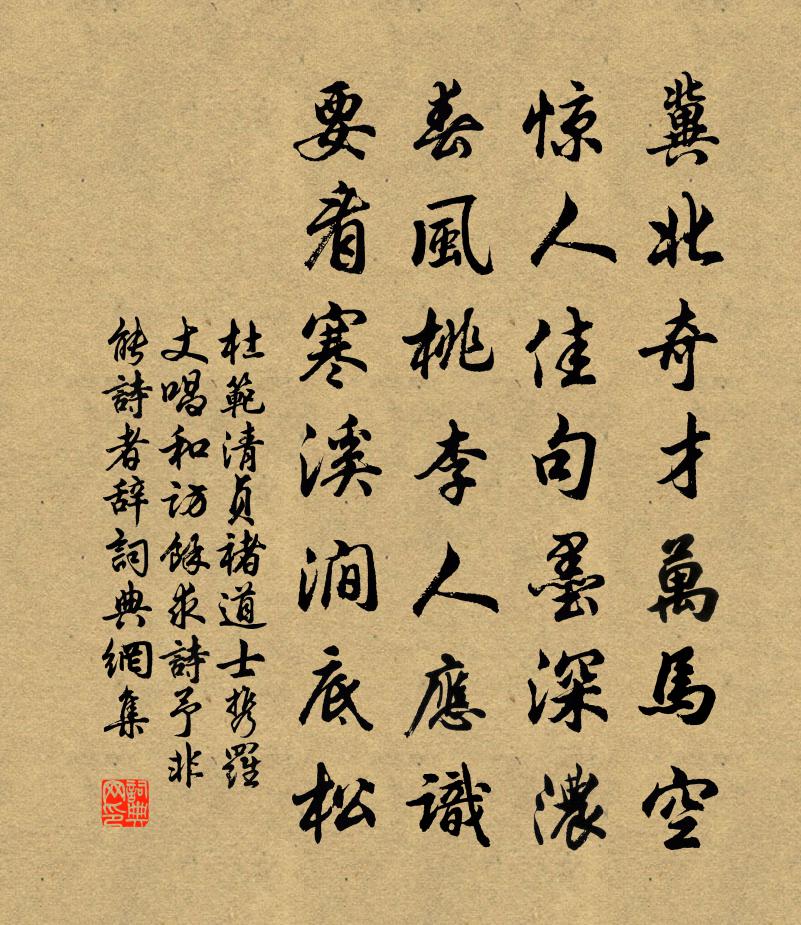 冀北奇才萬馬空
惊人佳句墨深濃
春風桃李人應識
要看寒溪澗底松
杜範清貞褚道士携羅
丈唱和訪餘求詩予非
能詩者辞詞典網集
詞典
网印